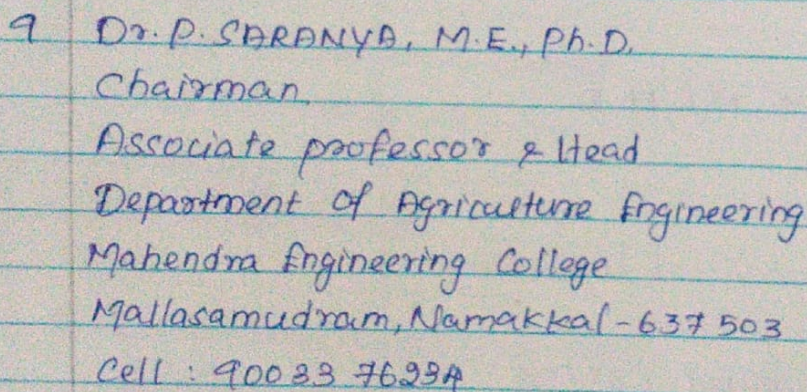 9 Dr. P. SARANYA, M.E., Ph.D.
Chairman
Associate professor & Head
Department of Agriculture Engineering
Mahendra Engineering College
Mallasamudram, Namakkal - 637 503
Cell : 90033